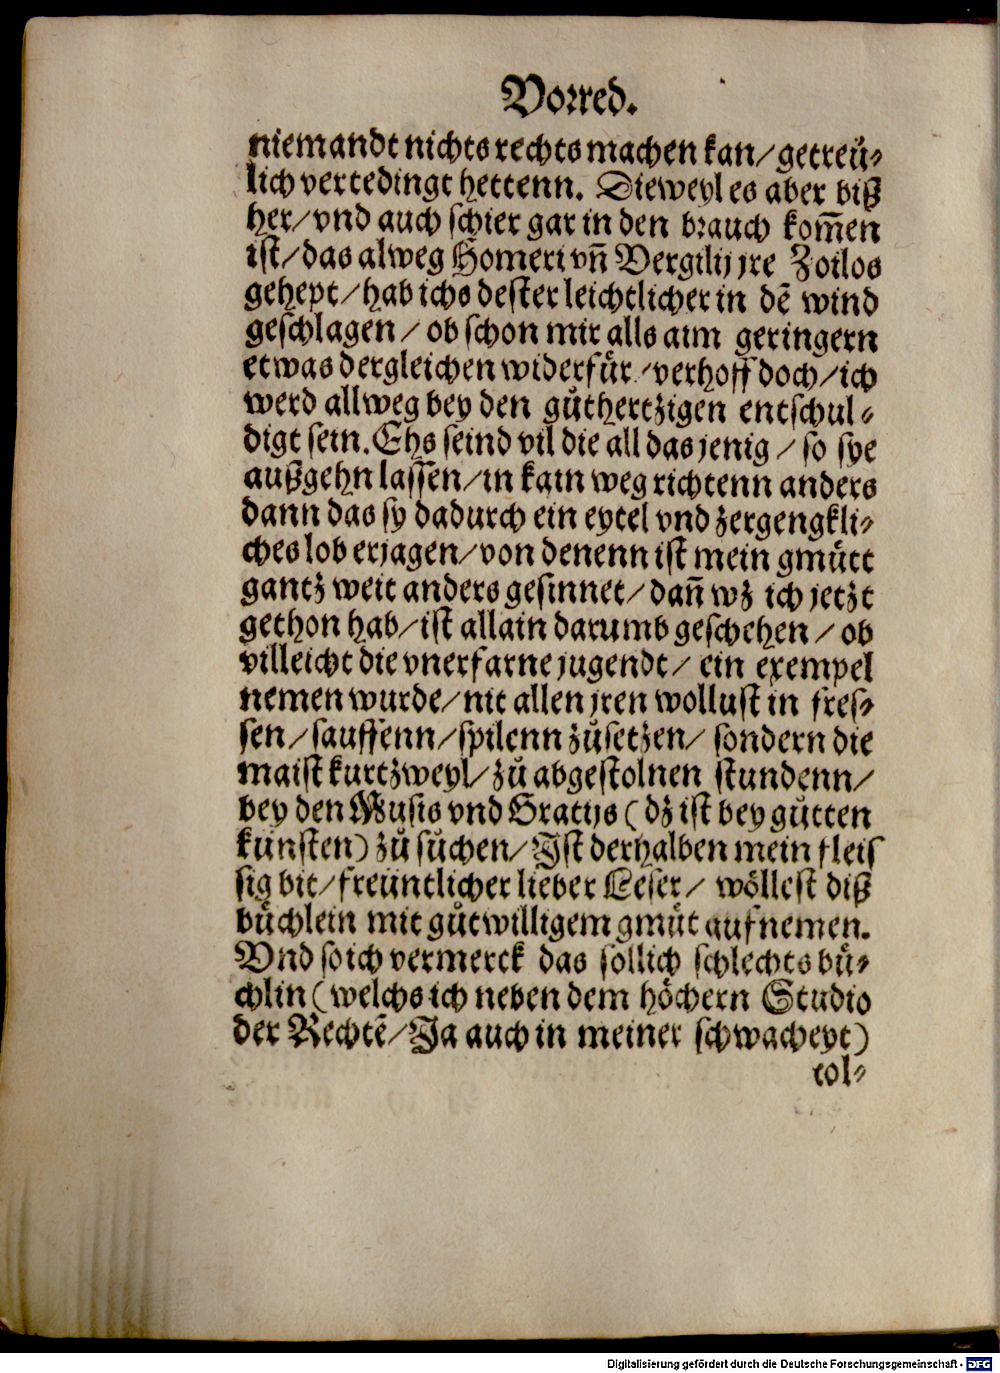 Vorred.
niemandt nichts rechts machen kan/ getreü⸗
lich vertedingt hettenn. Dieweyl es aber biß
her/ vnd auch schier gar in den brauch kom̄en
ist/ das alweg Homeri vn̄ Vergilij jre Zoilos
gehept/ hab ichs dester leichtlicher in dē wind
geschlagen/ ob schon mir alls aim geringern
etwas dergleichen widerfür/ verhoff doch/ ich
werd allweg bey den gůthertzigen entschul⸗
digt sein. Ehs seind vil die all das jenig/ so sye
außgehn lassen/ in kain weg richtenn anders
dann das sy dadurch ein eytel vnd zergengkli⸗
ches lob erjagen/ von denenn ist mein gmütt
gantz weit anders gesinnet/ dan̄ wz ich jetzt
gethon hab/ ist allain darumb geschehen/ ob
villeicht die vnerfarne jugendt/ ein exempel
nemen wurde/ nit allen jren wollust in fres⸗
sen/ sauffenn/ spilenn zůsetzen/ sondern die
maist kurtzweyl/ zů abgestolnen stundenn/
bey den Musis vnd Gratijs (dz ist bey gůtten
künsten) zů sůchen/ Ist derhalben mein fleis
sig bit/ freüntlicher lieber Leser/ wöllest diß
büchlein mit gůtwilligem gmüt aufnemen.
Vnd so ich vermerck das söllich schlechts bü⸗
chlin (welchs ich neben dem höchern Studio
der Rechtē/ Ja auch in meiner schwacheyt)
col⸗
Digitalisierung gefördert durch die Deutsche Forschungsgemeinschaft - DFG